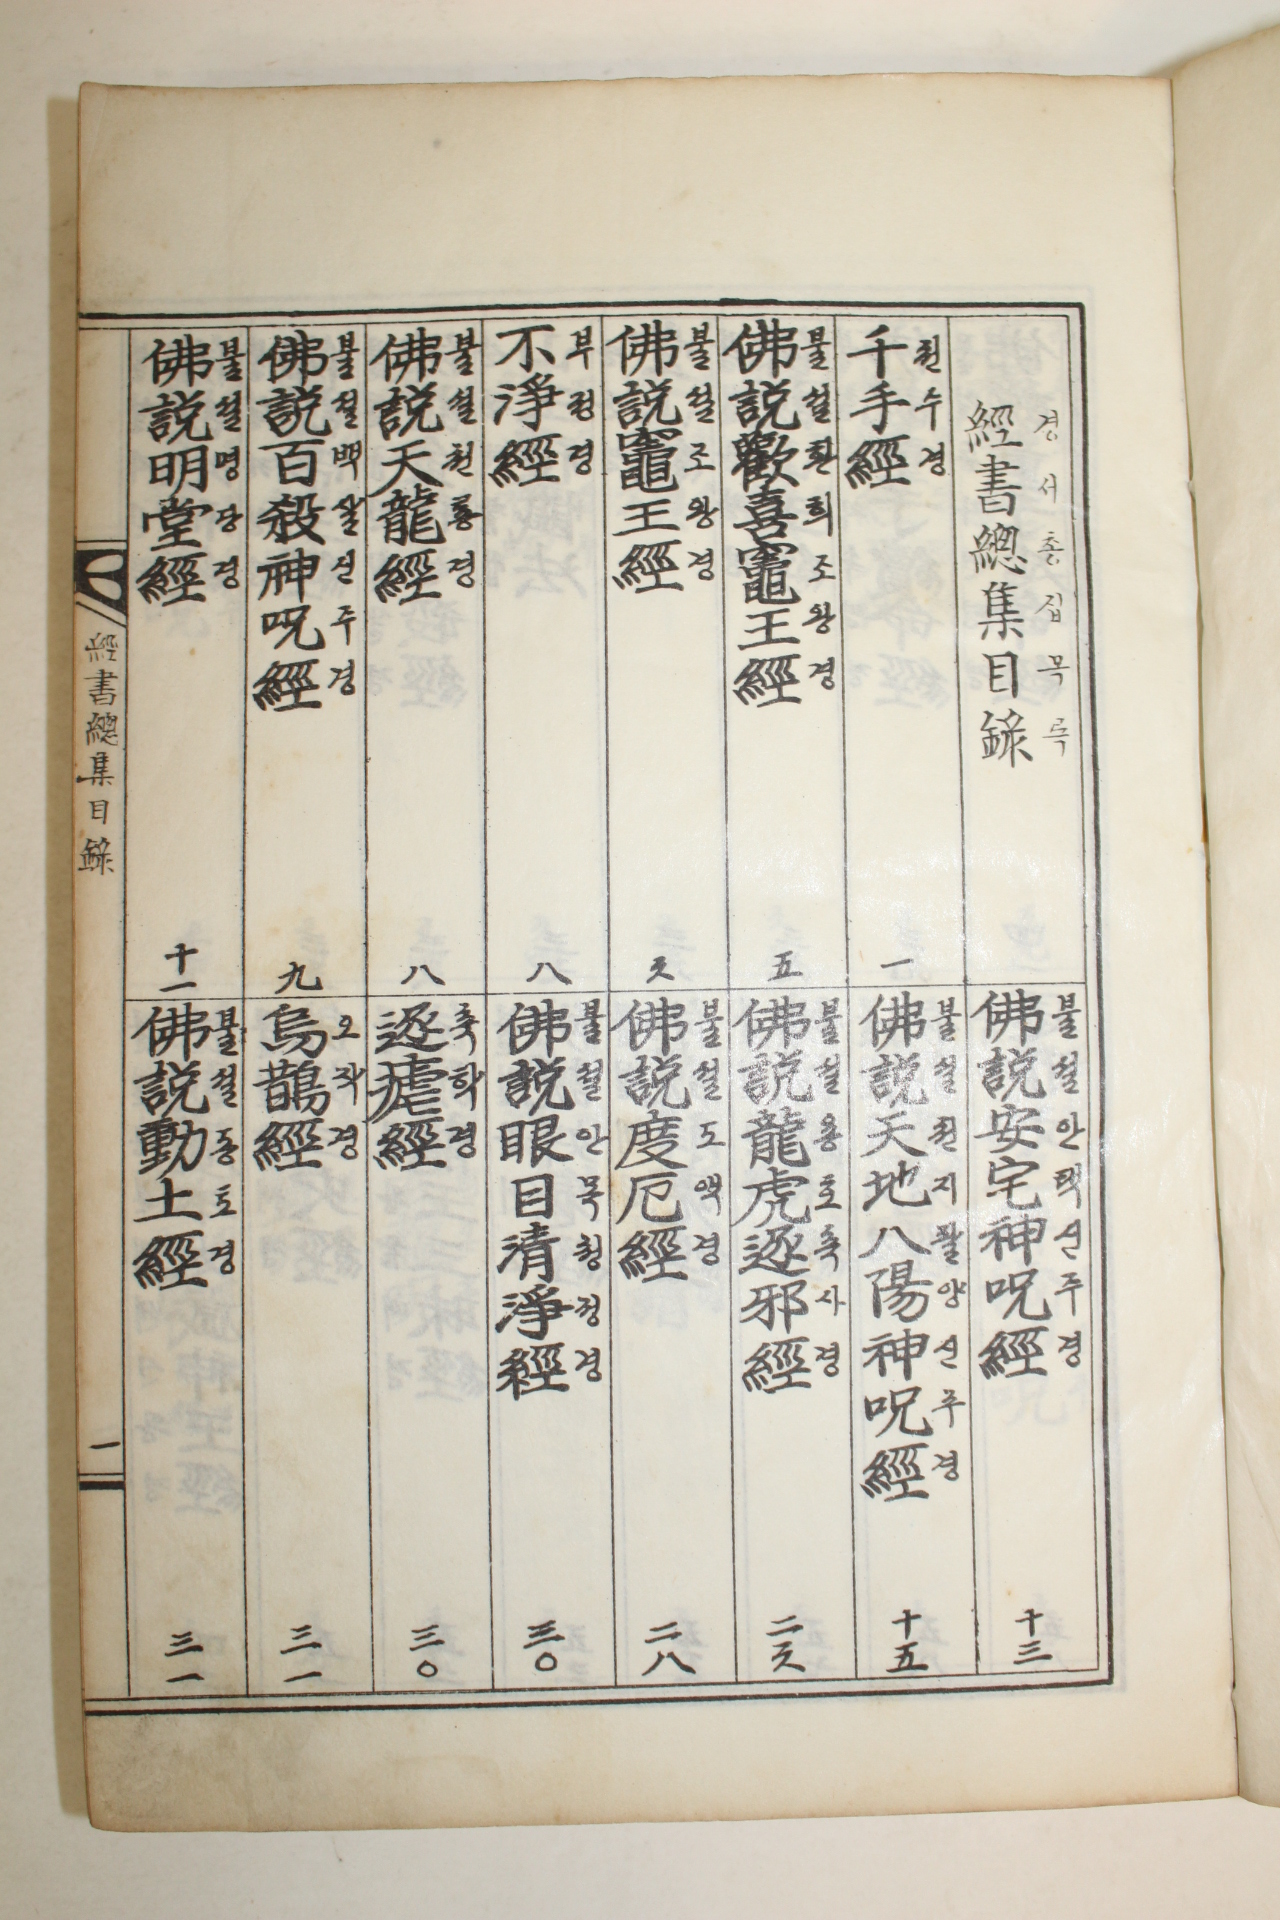 經書總集目錄 경서총집목록
千手經 천수경 一
佛說歡喜竈王經 불설환희조왕경 五
佛說竈王經 불설조왕경 六
不淨經 부정경 八
佛說天龍經 불설천룡경 八
佛說百殺神呪經 불설백살신주경 九
佛說明堂經 불설명당경 十一
佛說安宅神呪經 불설안택신주경 十三
佛說天地八陽神呪經 불설천지팔양신주경 十五
佛說龍虎逐邪經 불설용호축사경 二六
佛說度厄經 불설도액경 二八
佛說眼目清淨經 불설안목청정경 三〇
逐瘧經 축학경 三〇
烏鵲經 오작경 三一
佛說動土經 불설동토경 三一
經書總集目錄 一